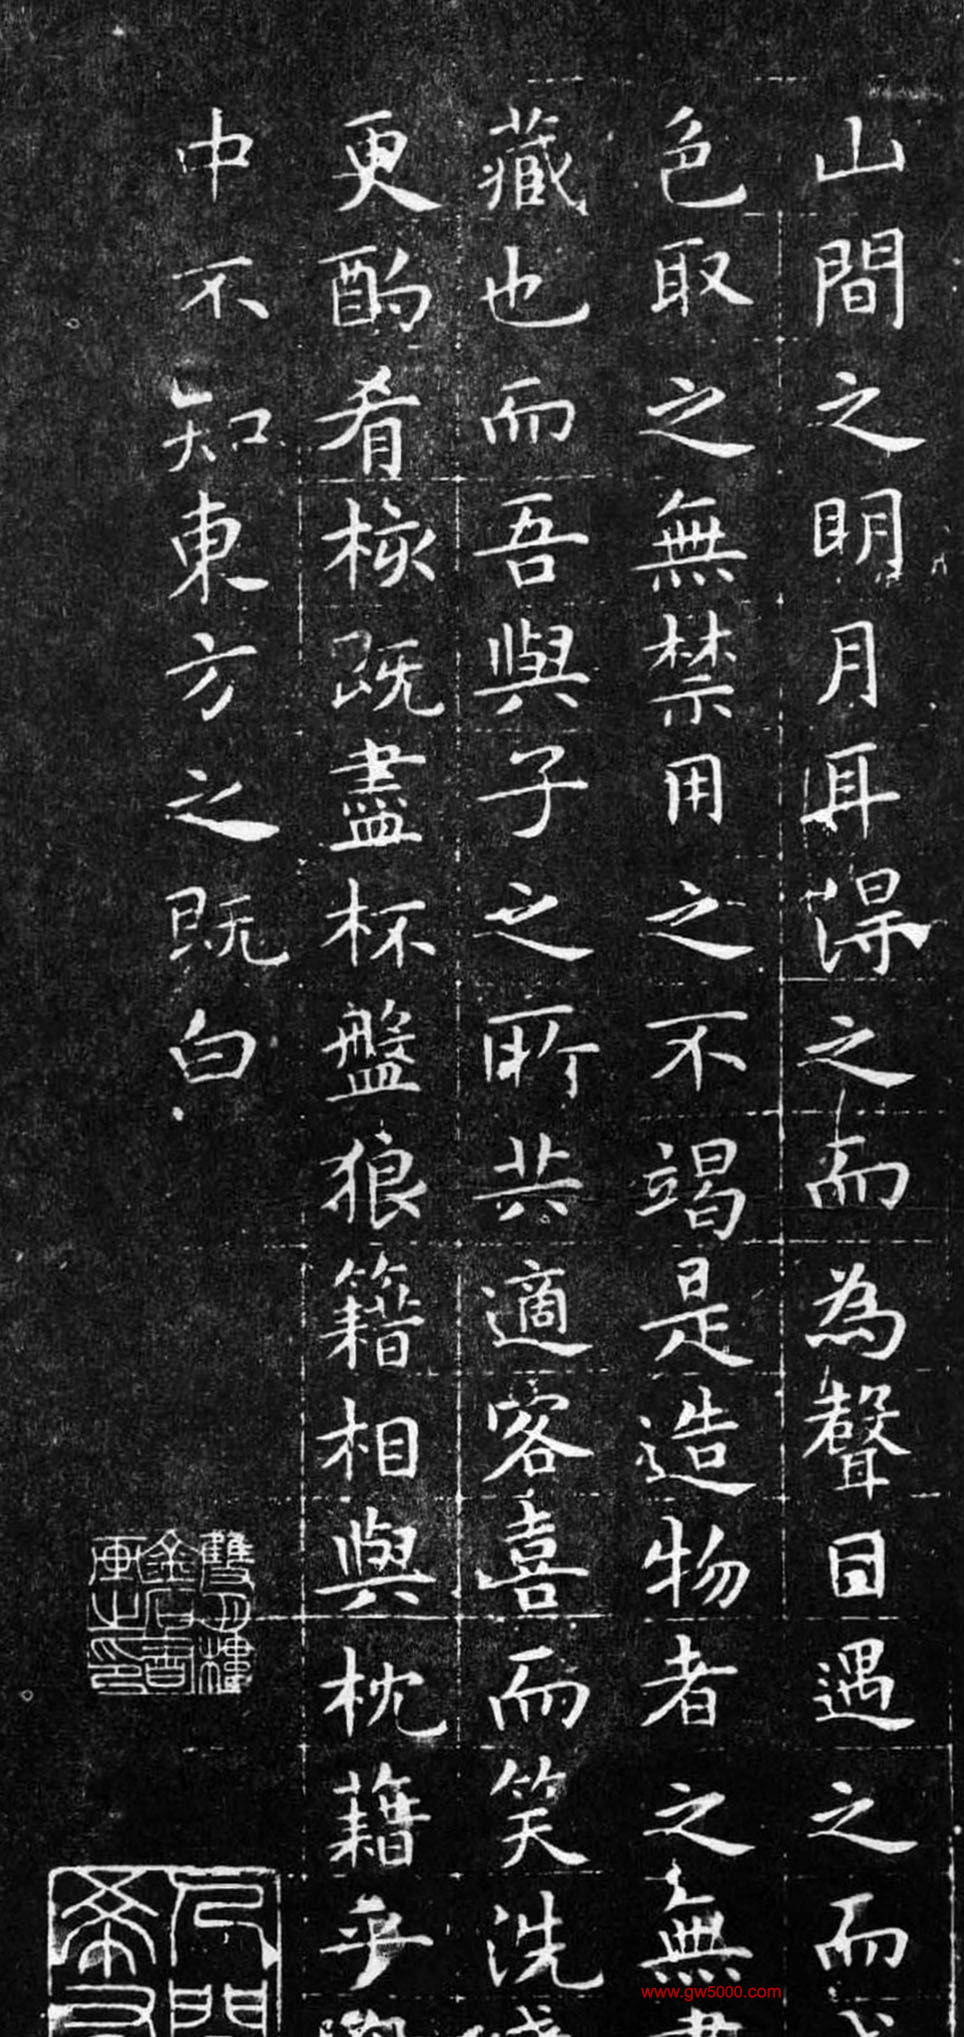 山間之明月耳得之而為聲目遇之而
色取之無禁用之不竭是造物者之無
藏也而吾與子之所共適客喜而笑洗
更酌肴核既盡杯盤狼籍相與枕藉乎
中不知東方之既白
www.gw5000.com